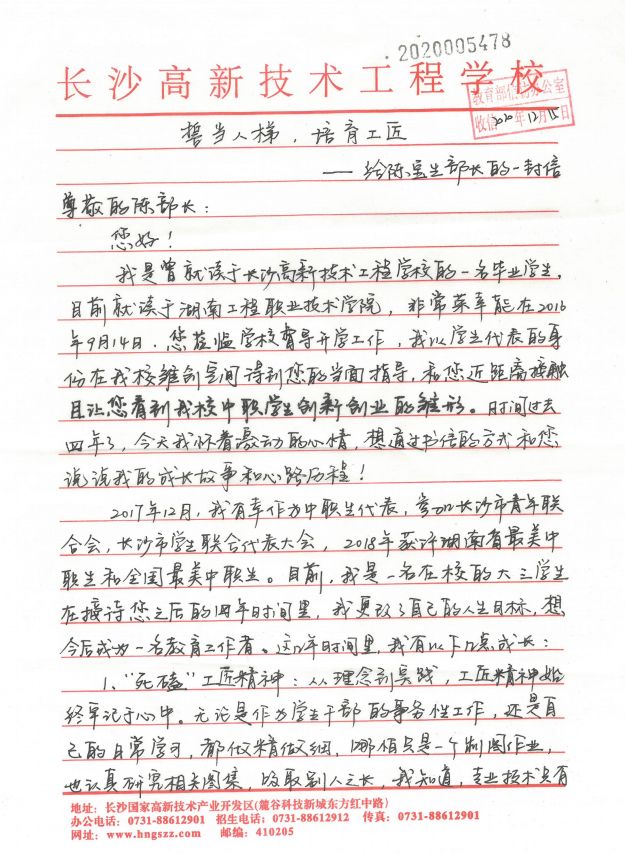 2020005478
长沙高新技术工程学校
教育部信访办公室
收信2020年12月15日
誓当人梯，培育工匠
——给陈宝生部长的一封信
尊敬的陈部长：
您好！
我是曾就读于长沙高新技术工程学校的一名毕业学生，
目前就读于湖南工程职业技术学院，非常荣幸能在2016
年9月14日，您莅临学校督导开学工作，我以学生代表的身
份在我校雏创空间得到您的当面指导，和您近距离接触
且让您看到我校中职学生创新创业的雏形。时间过去
四年了，今天我怀着激动的心情，想通过书信的方式和您
说说我的成长故事和心路历程！
2017年12月，我有幸作为中职生代表，参加长沙市青年联
合会，长沙市学生联合代表大会，2018年获评湖南省最美中
职生和全国最美中职生。目前，我是一名在校的大三学生
在接待您之后的四年时间里，我更改了自己的人生目标，想
今后成为一名教育工作者。这四年时间里，我有以下几点成长：
1、“死磕”工匠精神：从理念到实践，工匠精神始
终牢记于心中。无论是作为学生干部的事务性工作，还是自
己的日常学习，都做精做细，哪怕只是一个制图作业，
也认真研究相关图集，吸取别人之长，我知道，专业技术只有
地址：长沙国家高新技术产业开发区(麓谷科技新城东方红中路)
办公电话：0731-88612901 招生电话：0731-88612912 传真：0731-88612901
网址：www.hngszz.com 邮编：410205